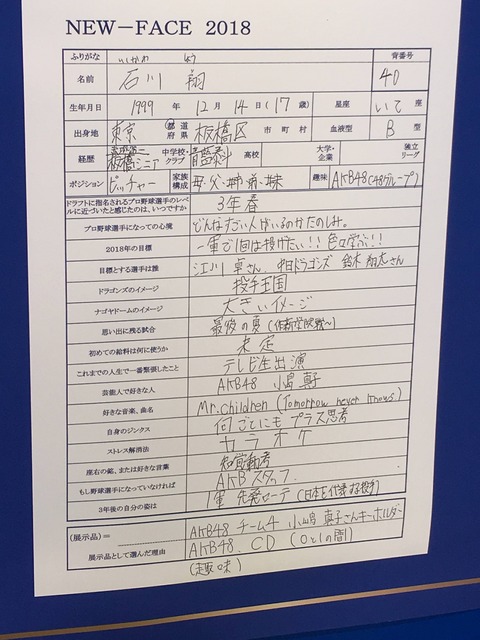 NEW−FACE 2018
ふりがな いしかわ しょう 背番号
名前 石川 翔 40
生年月日 1999 年 12 月 14 日(17 歳) 星座 いて 座
出身地 東京 都道府県 板橋区 市町村 血液型 B 型
経歴 板橋シニア 中学校・クラブ 青藍泰斗 高校 大学・企業 独立リーグ
ポジション ピッチャー 家族構成 母・父・姉・弟・妹 趣味 AKB48(48グループ)
ドラフトに指名されるプロ野球選手のレベルに近づいたと感じたのは、いつですか 3年春
プロ野球選手になっての心境 どんなすごい人がいるのかたのしみ。
2018年の目標 一軍で1回は投げたい!!色々学ぶ!!
目標とする選手は誰 江川 卓さん、中日ドラゴンズ 鈴木 翔太さん
ドラゴンズのイメージ 投手王国
ナゴヤドームのイメージ 大きいイメージ
思い出に残る試合 最後の夏(作新学院戦〜)
初めての給料は何に使うか 未定
これまでの人生で一番緊張したこと テレビ生出演
芸能人で好きな人 AKB48 小嶋 真子
好きな音楽、曲名 Mr.children (Tomorrow never knows.)
自身のジンクス 何ごとにもプラス思考
ストレス解消法 カラオケ
座右の銘、または好きな言葉
もし野球選手になっていなければ AKBスタッフ
3年後の自分の姿は 1軍 先発ローテ(日本を代表する投手)
(展示品)= AKB48 チーム4 小嶋 真子さんキーホルダー
展示品として選んだ理由 AKB48. CD (0と1の間)
(趣味)